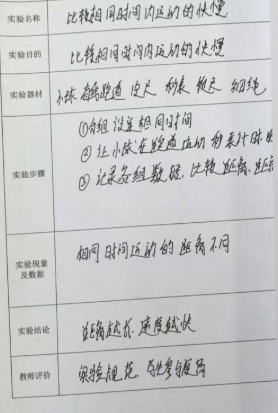 实验名称 比较相同时间内运动的快慢
实验目的 比较相同时间内运动的快慢
实验器材 小球 跑道 皮尺 秒表 细绳
实验步骤 ①分组 设置相同时间
② 让小球在跑道运动 秒表计时
③ 记录各组数据, 比较距离,
实验现象及数据 相同时间运动的距离不同
实验结论 距离越长, 速度越快
教师评价 实验规范,